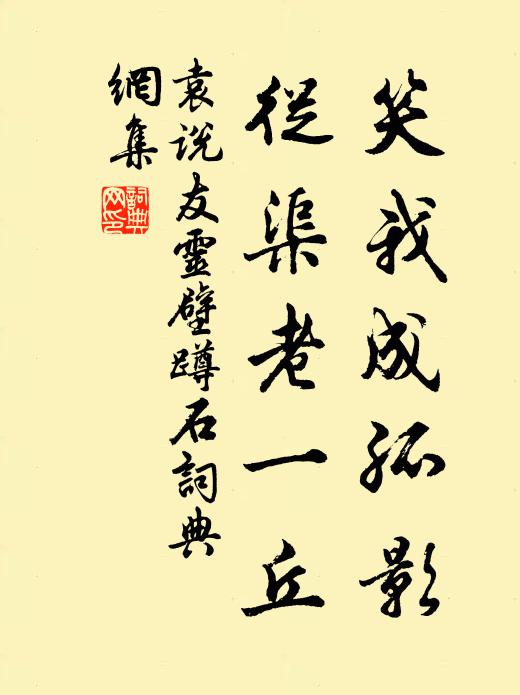 笑我成孤影
從渠老一丘
袁說友靈壁蹲石詞典
網集
詞典
网印